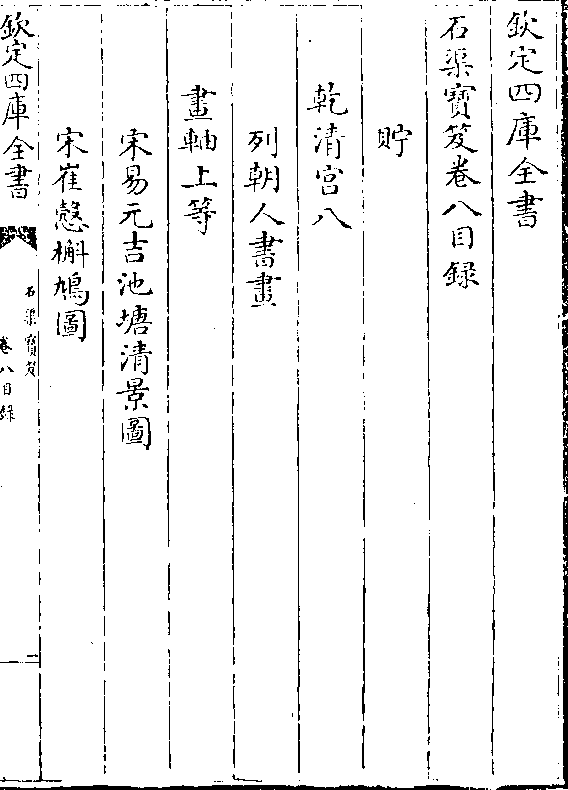 欽定四庫全書
石渠寳笈卷八目録
貯
乾清宫八
列朝人書畫
畫軸上等
宋易元吉池塘清景圖
宋崔慤槲鳩圖
欽定四庫全書
石渠寳笈
卷八目録
一